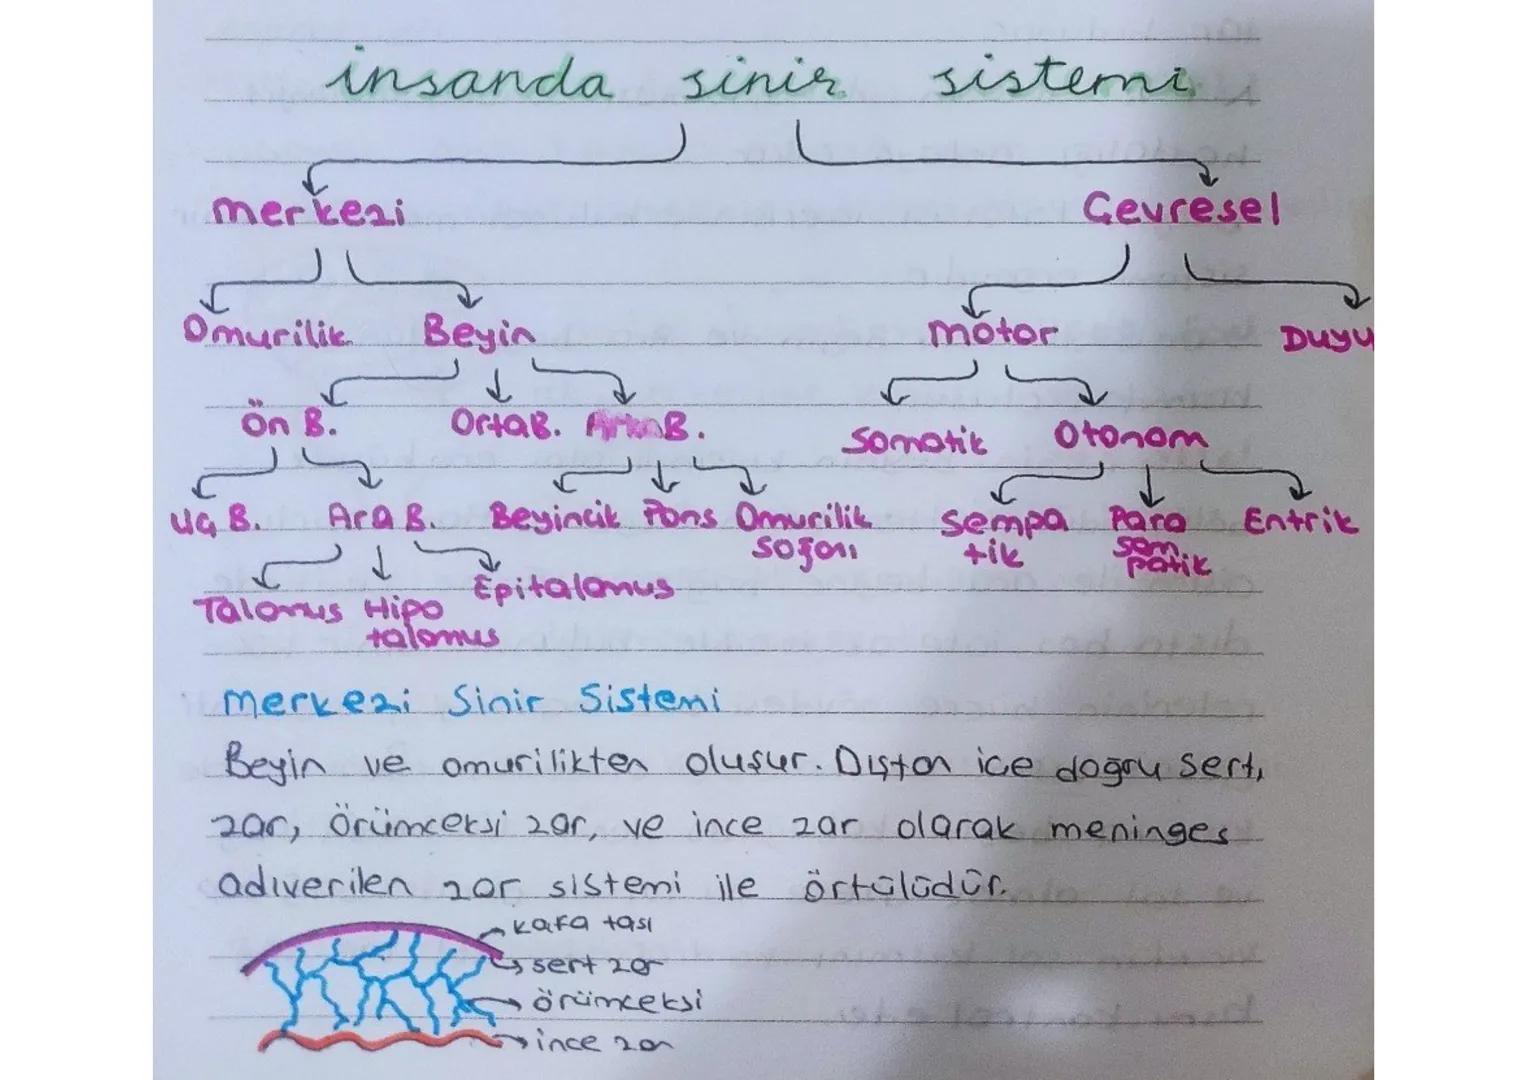 insanda sinir sistemi
merkezi Çevresel
Omurilik Beyin motor Duyu
Ön B. Orta B. Arka B. Somatik Otonom
Uç B. Ara B. Beyincik Pons Omurilik soğanı Sempatik Para sempatik Entrik
Talamus Hipo talamus Epitalamus
merkezi Sinir Sistemi
Beyin ve omurilikten oluşur. Dıştan içe doğru sert,
zar, örümceksi zar, ve ince zar olarak meninges
adıverilen zar sistemi ile örtülüdür.
kafa tası
sert zar
örümceksi
ince zar